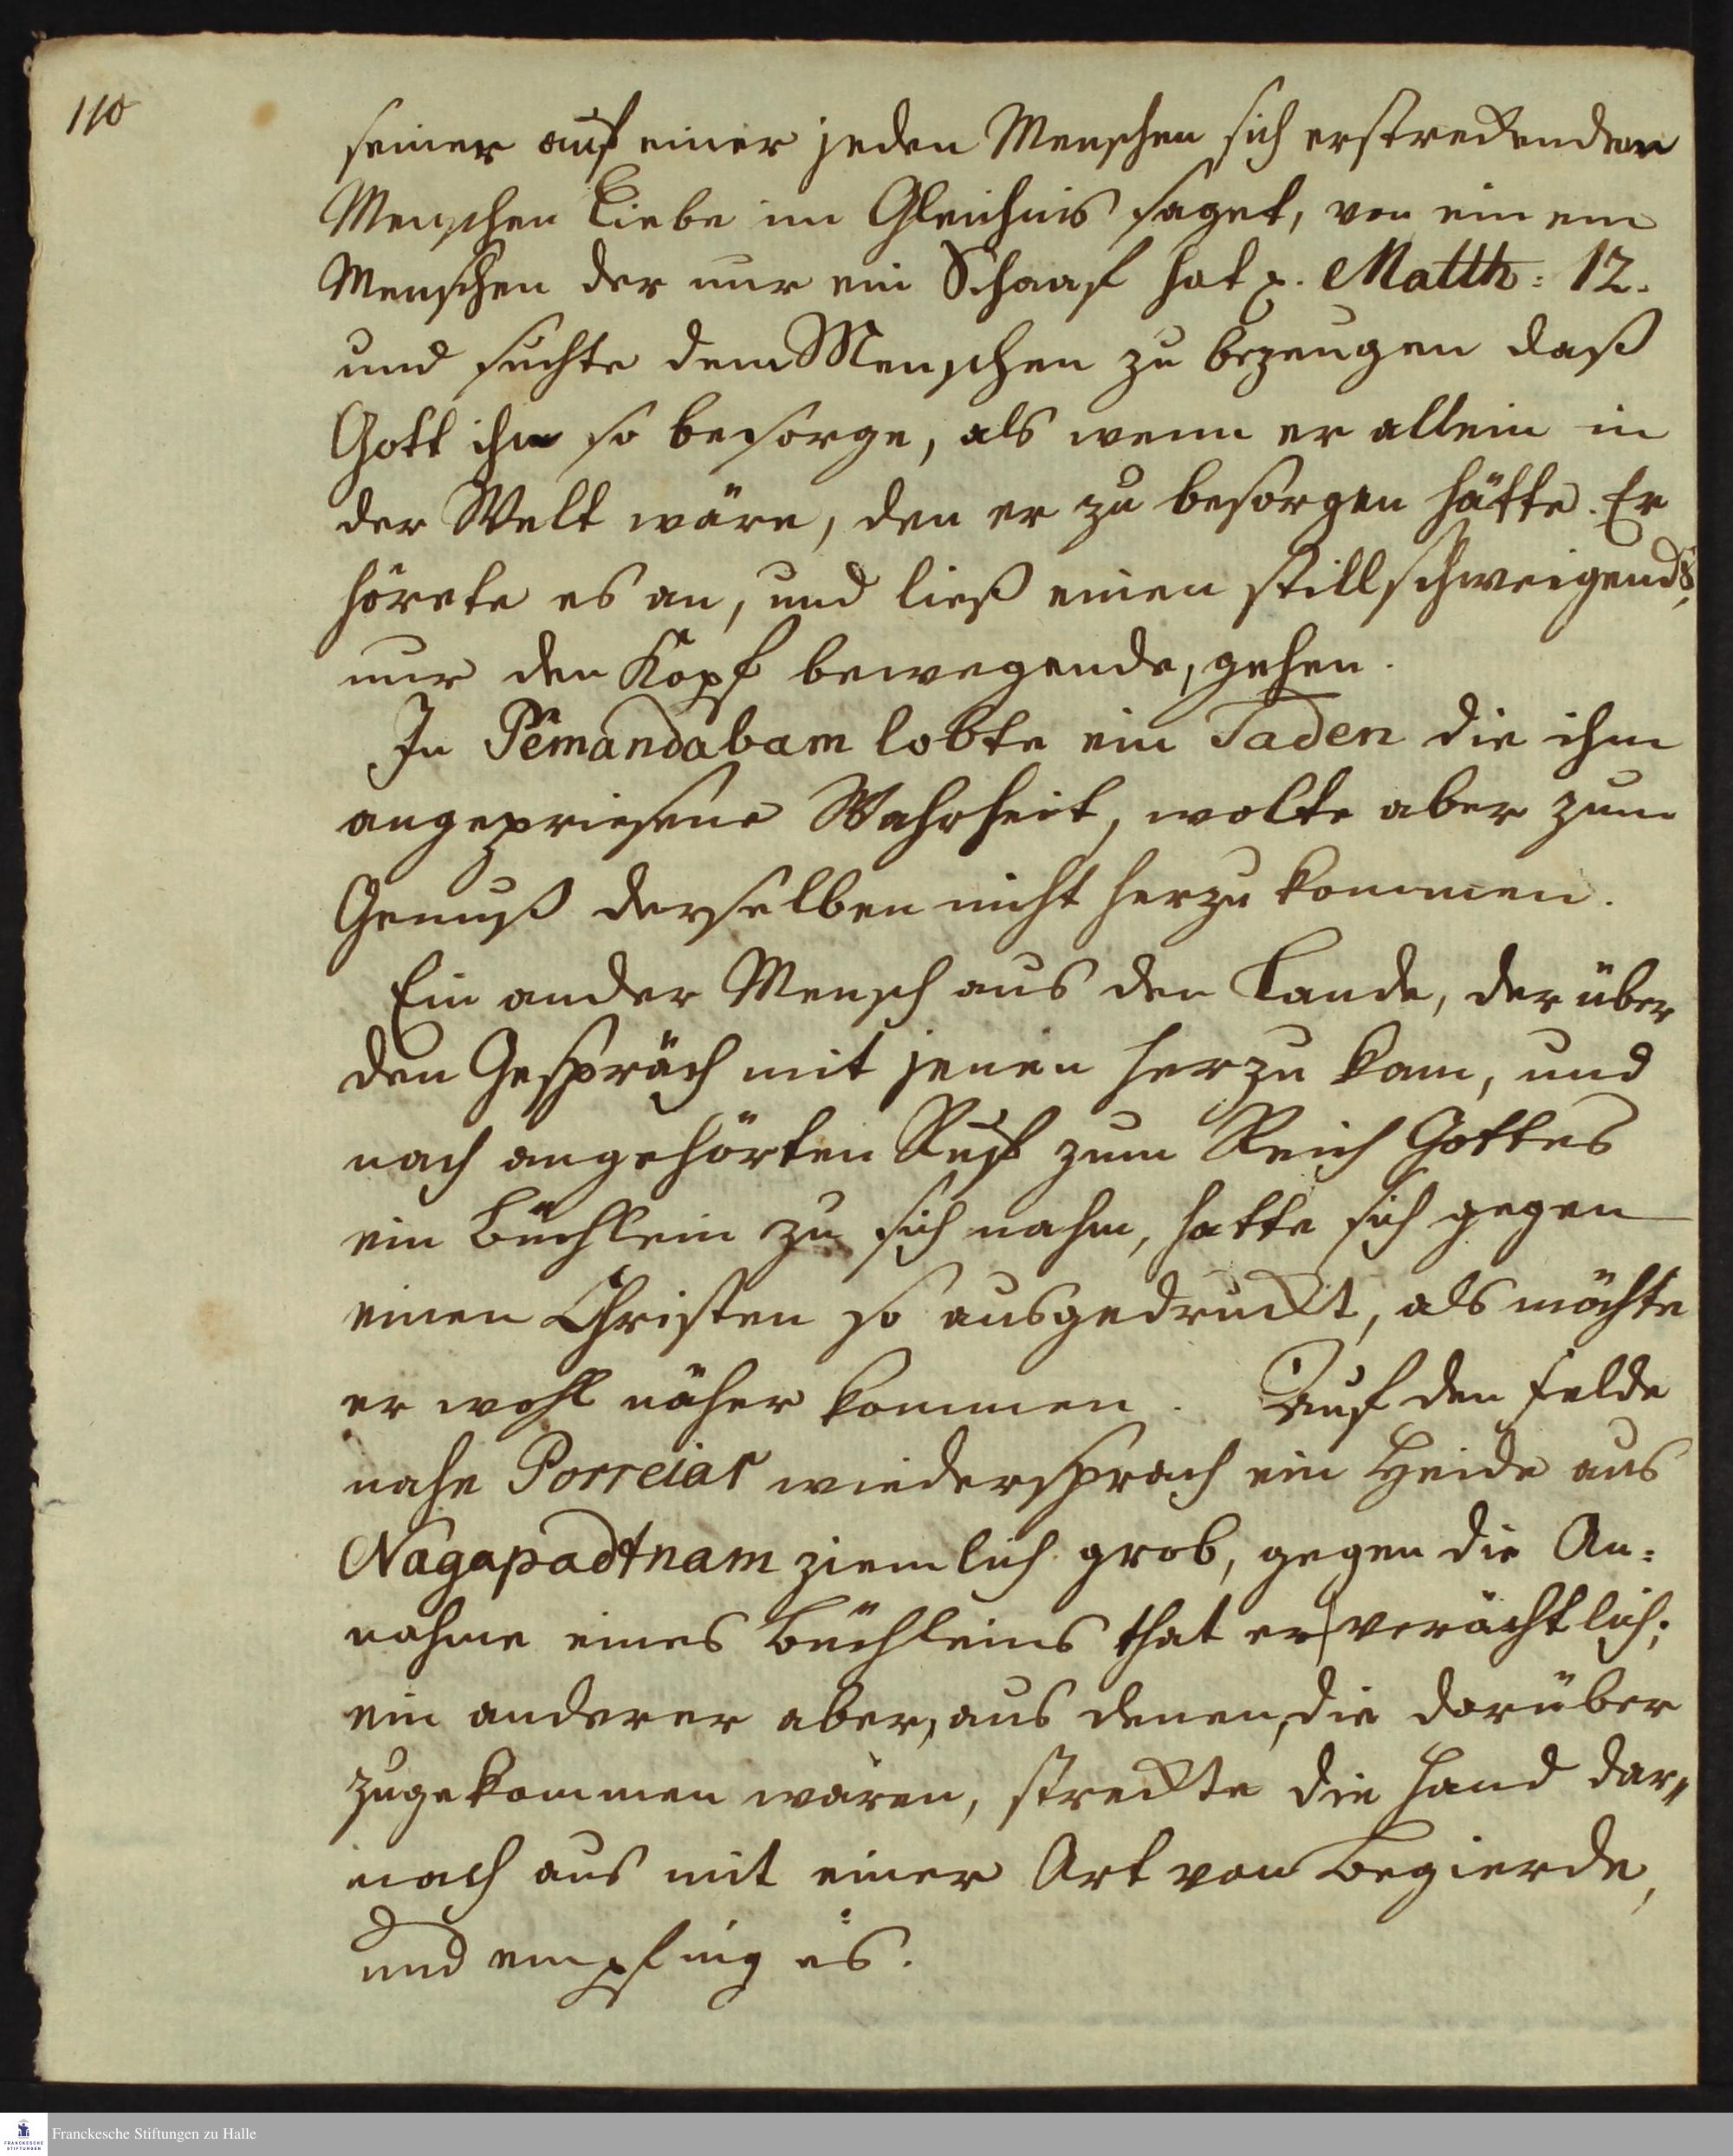 110
seiner auf einer jeden Menschen sich erstreckenden
Menschen Liebe im Gleichnis saget, von ein em
Menschen der nur ein Schaaf hat p. Matth: 12.
und suchte dem Menschen zu bezeugen daß
Gott ihn so besorge, als wenn er allein in
der Welt wäre, den er zu besorgen hätte. Er
hörete es an, und ließ einen stillschweigends,
nur den Kopf bewegende, gehen.
In Pemandabam lobte ein Taden die ihm
angepriesene Wahrheit, wolte aber zum
Genuß derselben nicht herzu kommen.
Ein ander Mensch aus den Lande, der über
den Gespräch mit jenen herzu kam, und
nach angehörten Ruf zum Reich Gottes
ein Büchlein zu sich nahm, hatte sich gegen
einen Christen so ausgedruckt, als möchte
er wohl näher kommen. Auf den Felde
nahe Porreiar wiedersprach ein Heide aus
Nagapadtnam ziemlich grob, gegen die An=
nahme eines Büchleins that er verächtlich;
ein anderer aber, aus denen, die darüber
zugekommen waren, streckte die Hand dar„
nach aus mit einer Art von Begierde,
und empfing es.
Franckesche Stiftungen zu Halle
FRANCKESCHE
STIFTUNGEN